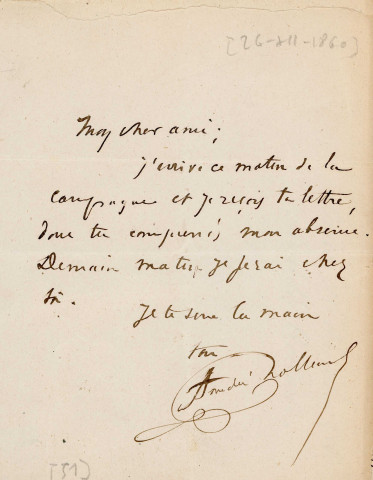 [26-XII-1860]
Mon cher ami,
j'arrive ce matin de la
campagne et je reçois ta lettre,
donc tu comprends mon absence.
Demain matin je serai chez
toi.
Je te serre la main
ton
Amédée Rolland
[51]